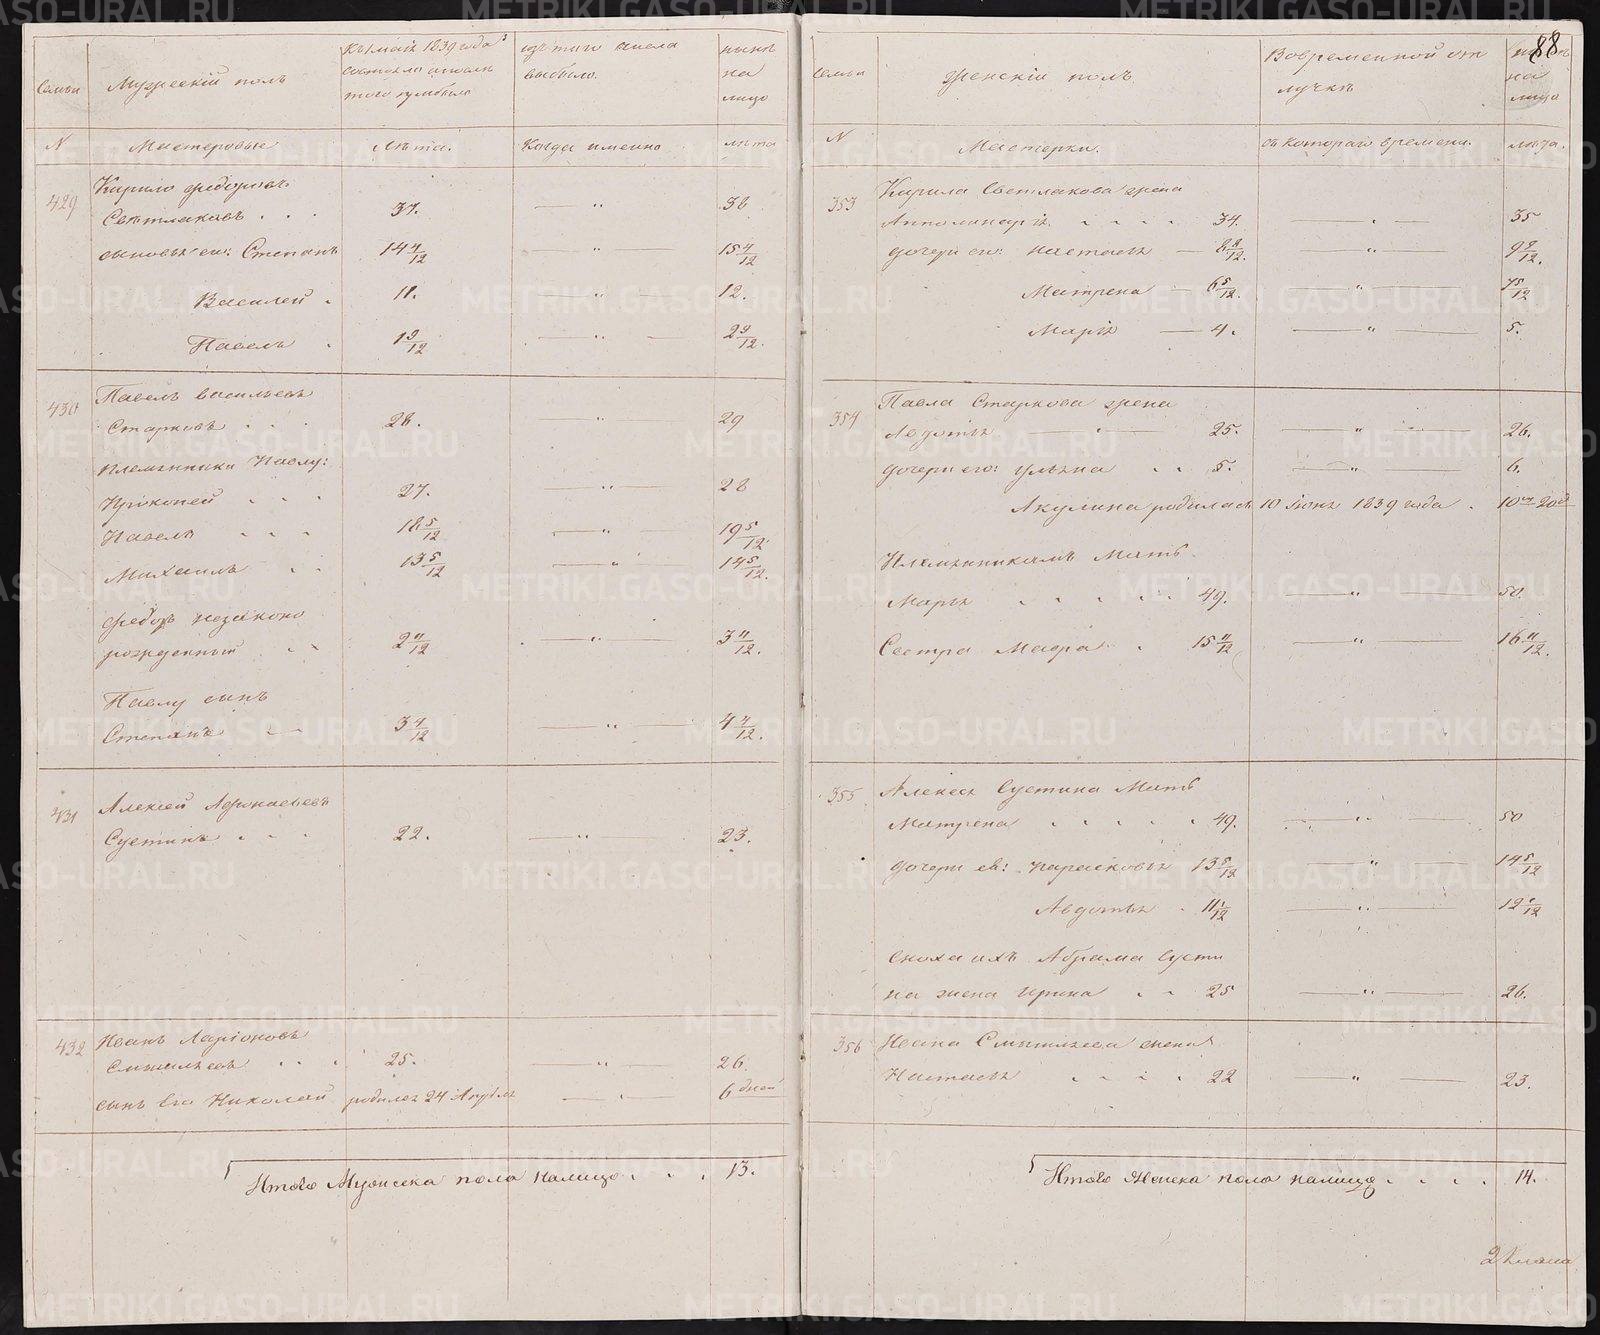 88
Семьи
Мужескій полъ
Къ 1 маія 1839 года
состояло и после
того прибыло
изъ того числа
выбыло.
ныне
на
лицо
N
Мастеровые
Лѣта.
Когда имянно
лѣта
429
Кирило Федоровъ
Светлаковъ . . .
37.
38
сыновья его: Степанъ
14 4/12
15 4/12
Василей .
11.
12.
Павелъ .
1 9/12
2 9/12.
430
Павелъ Васильевъ
Старковъ . . .
28.
29
племянники Павлу:
Прокопей . . .
27.
28
Павелъ . . .
18 5/12
19 5/12.
Михаилъ . .
13 5/12
14 5/12.
Федоръ незаконо
рожденный . .
2 11/12
3 11/12.
Павлу сынъ
Степанъ
3 4/12
4 4/12.
431
Алексей Афонасьевъ
Сустинъ . . .
22.
23.
432
Иванъ Ларіоновъ
Смышляевъ . . .
25.
26.
сынъ Его Николай родился 24 Апреля
6 дней
Итого Мужеска пола налицо . . . 13.
Семьи
Женскій полъ
Во временной от
лучке
ныне
на
лицо
N
Мастерки.
съ котораго времени.
лѣта.
353
Кирила Светлакова жена
Апполинарія . . . . 34.
35
дочери его: Настасья 8 8/12.
9 8/12.
Матрена 6 5/12.
7 5/12
Марія 4.
5.
354
Павла Старкова жена
Авдотья 25.
26.
дочери его: Ульяна . . 5.
6.
Акулина родилась 10 Іюня 1839 года . 10 м 20 д
Племянникамъ Мать
Марья . . . . . 49.
50.
Сестра Мавра . 15 11/12
16 11/12.
355
Алексея Сустина Мать
Матрена . . . . . 49.
50
дочери ея: Парасковья 13 5/12
14 5/12
Авдотья . 11 1/12
12 1/12
сноха ихъ Абрама Сусти
на жена Ирина . . 25
26.
356
Ивана Смышляева жена
Настасья . . . . 22
23.
Итого Женска пола налицо . . . . 14.